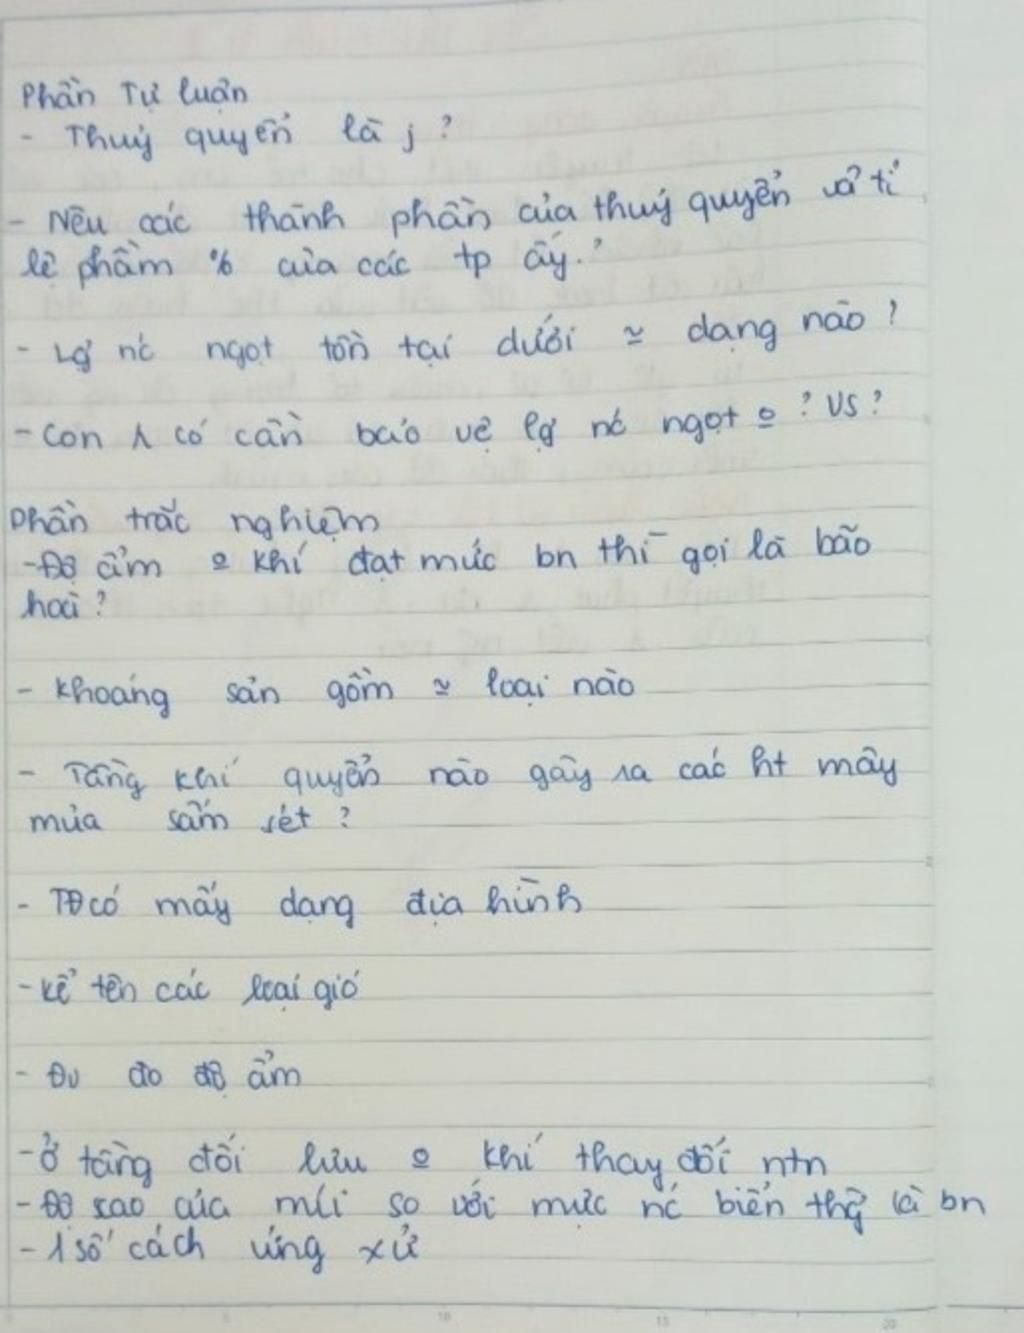 Phần Tự luận
- Thuỷ quyển là j ?
- Nêu các thành phần của thuỷ quyển và tỉ
lệ phầm % của các tp ấy.?
- Lg nc ngọt tồn tại dưới ~ dạng nào ?
- Con n có cần bảo vệ lg nc ngọt o ? VS ?
Phần trắc nghiệm
- Độ ẩm o khí đạt mức bn thì gọi là bão
hoà ?
- Khoáng sản gồm ~ loại nào
- Tầng khí quyển nào gây ra các ht mây
mưa sấm sét ?
- TĐ có mấy dạng địa hình
- Kể tên các loại gió
- Đv đo độ ẩm
- Ở tầng đối lưu o khí thay đổi ntn
- Độ cao của núi so với mực nc biển thg là bn
- 1 số cách ứng xử